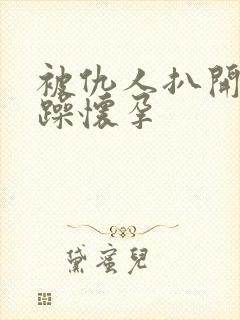 被仇人扒開
躁懷孕
黛蜜兒